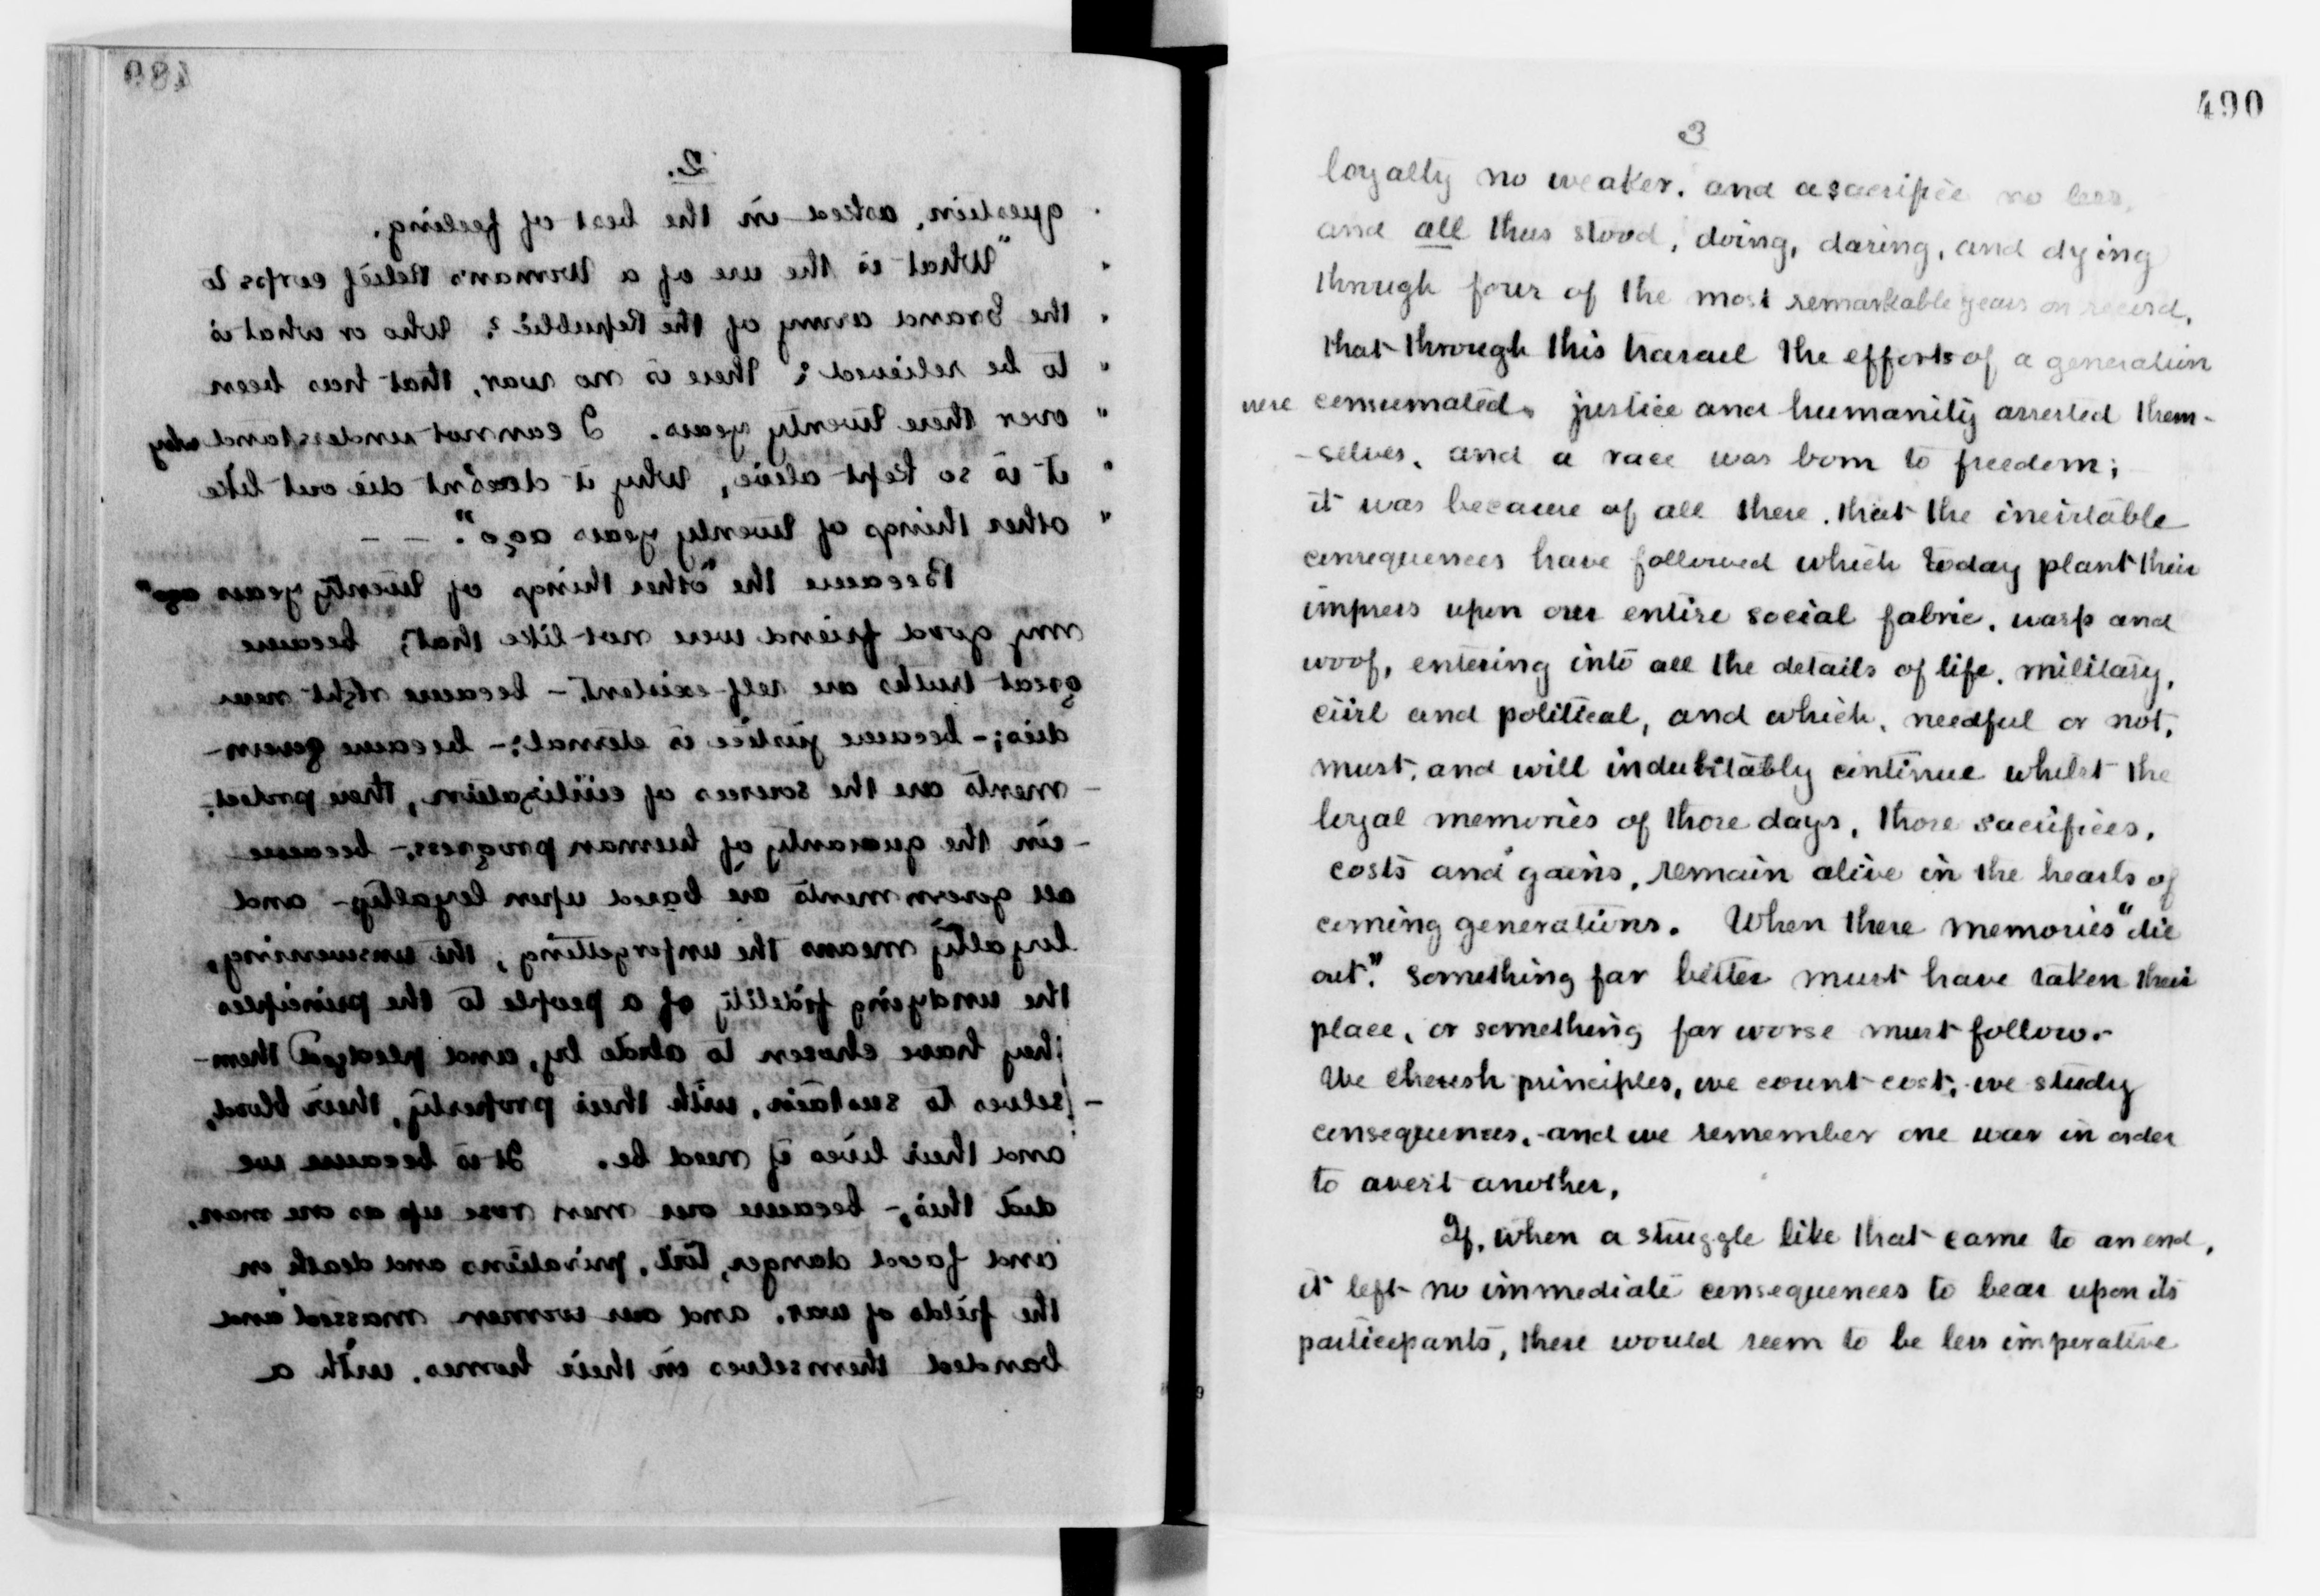 489
2.
question, asked in the best of feeling.
"What is the use of a Woman's Relief corps to
" the Grand army of the Republic? Who or what is
" to be relieved? There is no war, that has been
" over these twenty years. I cannot understand why
" it is so kept alive, Why it doesn't die out like
" other things of twenty years ago". — —
Because the "other things of twenty years ago"
my good friend were not like that; because
great truths are self-existent; - because right never
dies; - because justice is eternal; - because govern-
- ments are the sources of civilization, their protect-
- ion the guaranty of human progress; - because
all governments are based upon loyalty - and
loyalty means the unforgetting, the unswerving,
the undying fidelity of a people to the principles
they have chosen to abide by, and pledged them-
- selves to sustain, with their property, their blood,
and their lives if need be. It is because we
did this, - because our men rose up as one man,
and faced danger, toil, privations and death on
the fields of war, and our women massed and
banded themselves in their homes, with a
490
3
loyalty no weaker, and a sacrifice no less,
and all thus stood, doing, daring, and dying
through four of the most remarkable years on record,
that through this travail the efforts of a generation
were consumated, justice and humanity asserted them-
- selves, and a race was born to freedom;
it was because of all these, that the inevitable
consequences have followed which today plant their
impress upon our entire social fabric, warp and
woof, entering into all the details of life, military,
civil and political, and which, needful or not,
must, and will indubitably continue whilst the
loyal memories of those days, those sacrifices,
costs and gains, remain alive in the hearts of
coming generations. When these memories "die
out", something far better must have taken their
place, or something far worse must follow. -
We cherish principles, we count cost, we study
consequences, - and we remember one war in order
to avert another.
If, when a struggle like that came to an end,
it left no immediate consequences to bear upon its
participants, there would seem to be less imperative